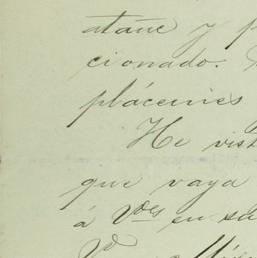 atañe y p
cionado.
plácemes
He vist
que vaya
á Vdes en su